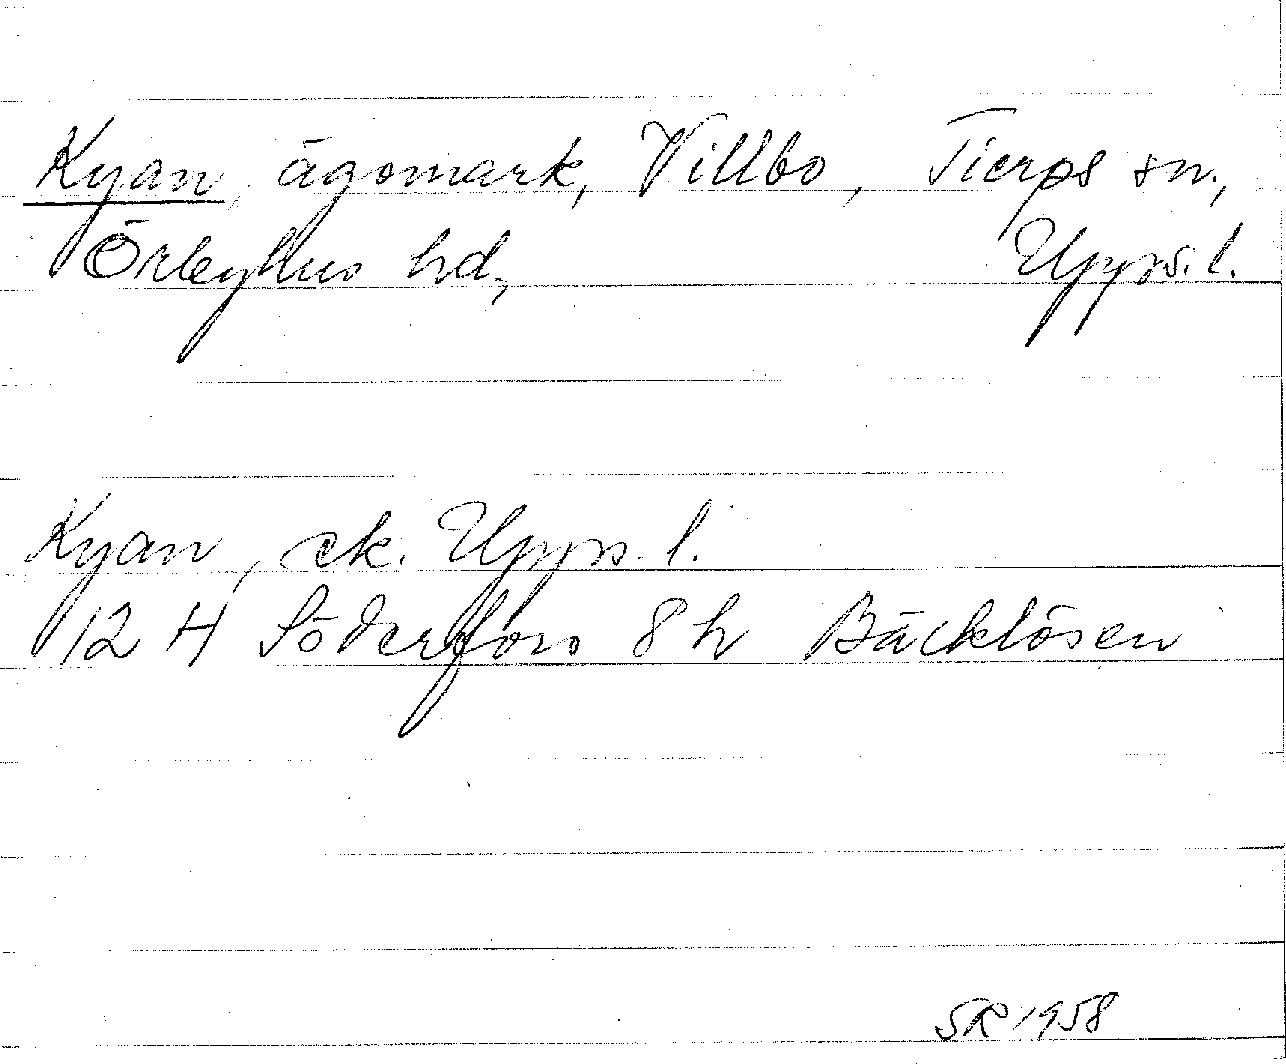 Kyan, ägomark, Villbo, Tierps sn.,
Örbyhus hd, Upps. l.
Kyan, ek. Upps. l.
12 H Söderfors 8 h Bäcklösen
SR 1958